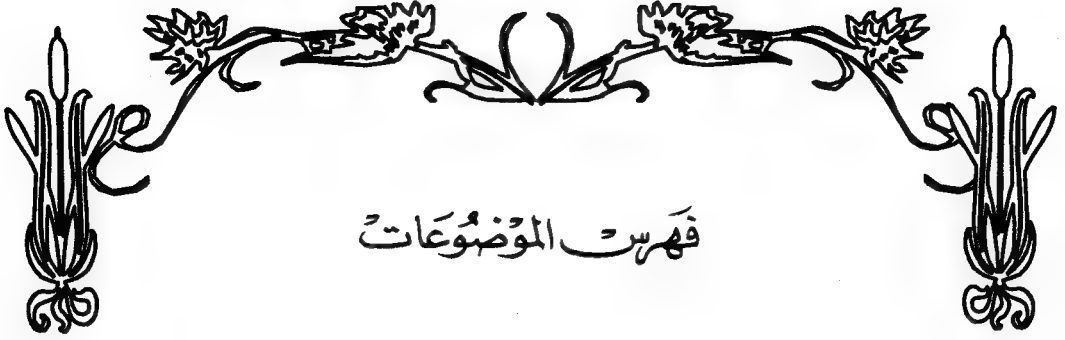 فَهَرسْ الموْضُوعَاتْ